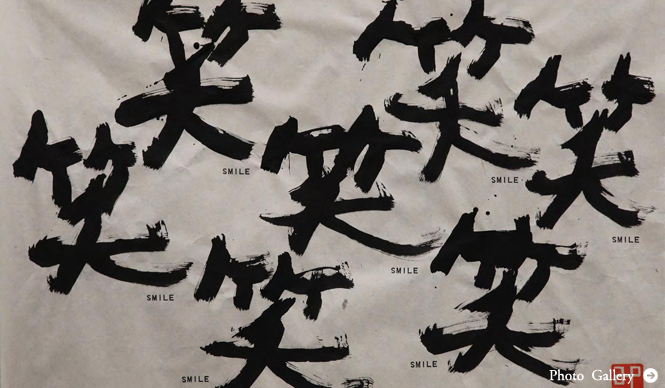 笑
SMILE
笑
SMILE
笑
SMILE
笑
SMILE
笑
SMILE
笑
SMILE
笑
SMILE
Photo Gallery